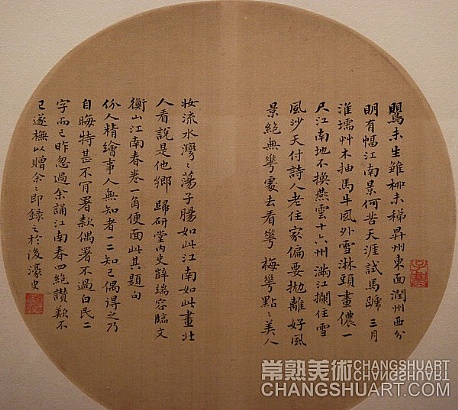 鶯未生雛柳未稊昇州東面潤州西分
明有幅江南景何苦天涯試馬蹄 三月
淮壖草木抽馬斗風外雪淋頭畫儂一
尺江南地不換燕雲十六州 滿江撊住雪
風沙天付詩人老住家偏要拋離好風
景絕無半處去看 梅點點美人
妝流水灣灣蕩子腸如此江南如此畫北
人看說是他鄉 歸研堂內史辭端容臨文
衡山江南春卷一角便面此其題句
份人精繪事人無知者一二知己偶得之乃
自晦特甚不肯署款偶署不過白民二
字而已昨忽過余誦江南春四絕讚歎不
已遂橅以贈余余即錄之於後濠史
常熟美術 CHANGSHUART
CHANGSHUART.COM